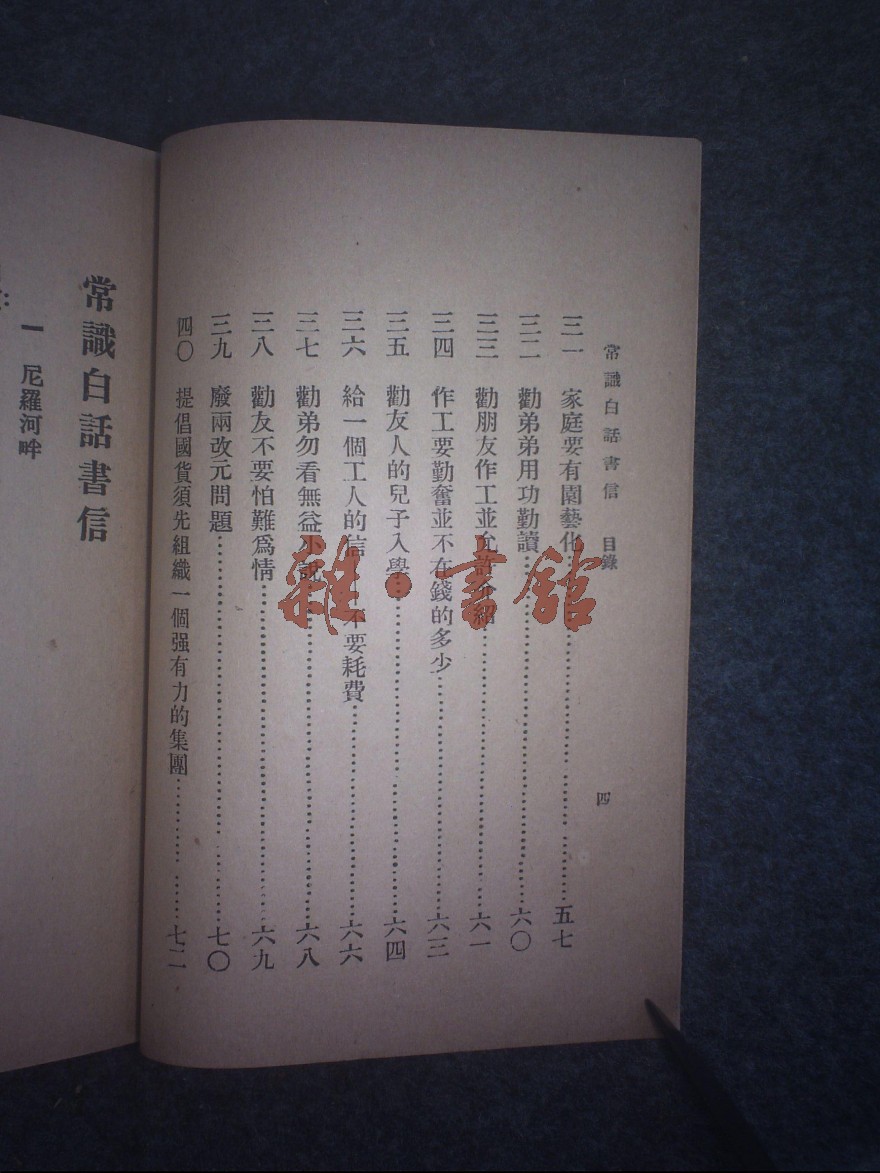 常識白話書信 目錄 四
三一 家庭要有園藝化……五七
三二 勸弟弟用功勤讀……六〇
三三 勸朋友作工並允許介紹……六一
三四 作工要勤奮並不在錢的多少……六三
三五 勸友人的兒子入學……六四
三六 給一個工人的信——不要耗費……六六
三七 勸弟勿看無益小說……六八
三八 勸友不要怕難爲情……六九
三九 廢兩改元問題……七〇
四〇 提倡國貨須先組織一個强有力的集團……七二
常識白話書信
一 尼羅河畔
雜·書館